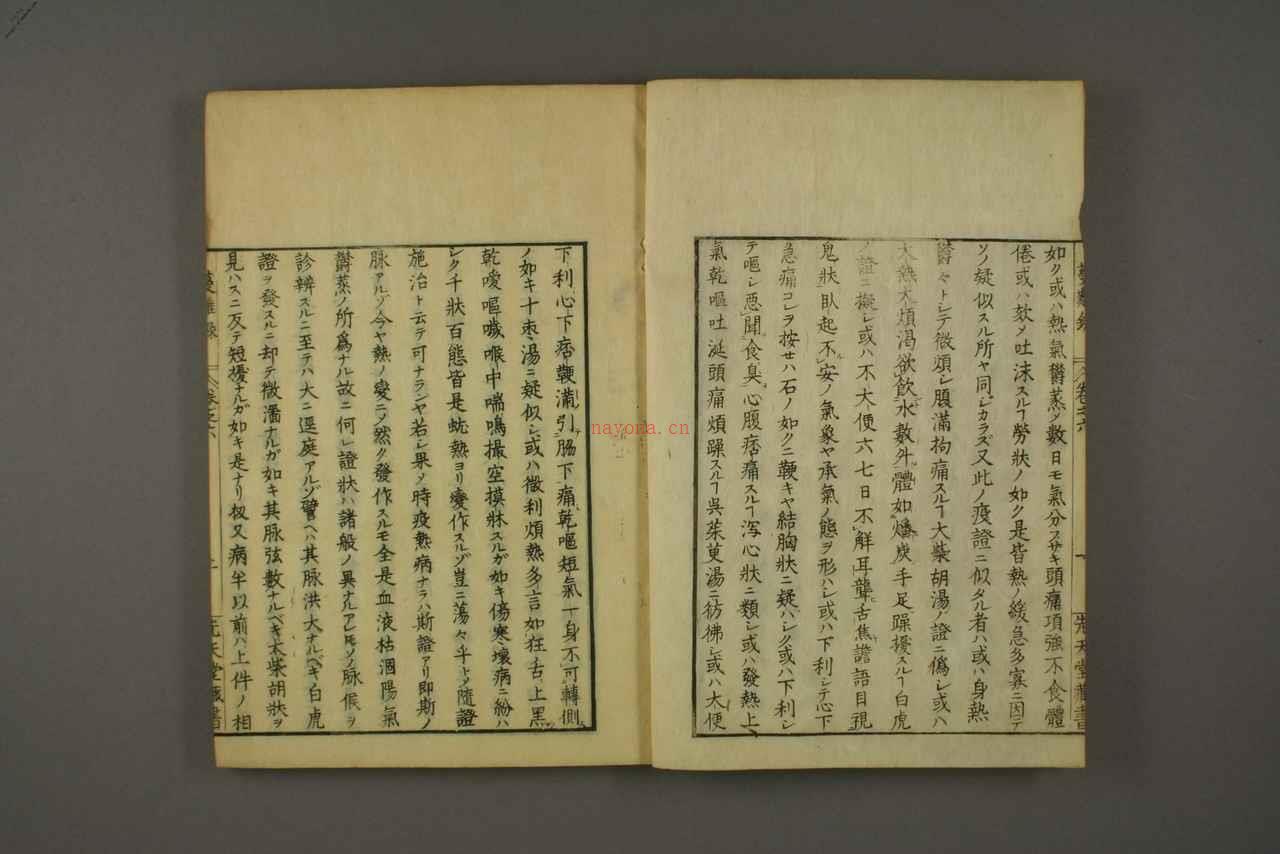 如ク或ハ熱氣鬱蒸メ數日モ氣分スサキ頭痛項強不食體
倦或ハ欬メ吐沫スルヿ勞狀ノ如ク是皆熱ノ緩急多寡ニ因テ
ソノ疑似スル所ヤ同シカラズ又此ノ疫證ニ似タル者ハ或ハ身熱
鬱々トシテ微煩シ腹滿拘痛スルヿ大柴胡湯ノ證ニ僞シ或ハ
大熱大煩渴欲飲水數升體如燔炭手足躁擾スルヿ白虎
ノ證ニ擬シ或ハ不大便六七日不解耳聾舌焦譫語目現
鬼狀臥起不安ノ氣象ヤ承氣ノ態ヲ形ハシ或ハ下利シテ心下
急痛コレヲ按セハ石ノ如クニ鞕キヤ結胸狀ニ疑ハシク或ハ下利シ
テ嘔シ惡聞食臭心腹痞痛スルヿ瀉心狀ニ類シ或ハ發熱上
氣乾嘔吐涎頭痛煩躁スルヿ吳茱萸湯ニ彷彿シ或ハ大便
下利心下痞鞕滿引脇下痛乾嘔短氣一身不可轉側
ノ如キ十棗湯ニ疑似シ或ハ微利煩熱多言如狂舌上黑
乾噯嘔噦喉中喘鳴撮空摸牀スルガ如キ傷寒壞病ニ紛ハ
シク千狀百態皆是蚘熱ヨリ變作スルゾ豈ニ蕩々乎トメ隨證
施治ト云テ可ナランヤ若シ果メ時疫熱病ナラハ斯證アリ即斯ノ
脉アルゾ今ヤ熱ノ變ニメ然ク發作スルモ全是血液枯涸陽氣
鬱蒸ノ所爲ナル故ニ何レ證狀ハ諸般ノ異ナルアレモソノ脉候ヲ
診辨スルニ至テハ大ニ逕庭アルゾ譬ヘハ其脉洪大ナルヘキ白虎
證ヲ發スルニ却テ微濇ナルガ如キ其脉弦數ナルベキ大柴胡狀ヲ
見ハスニ反テ短擾ナルガ如キ是ナリ扨又病半以前ハ上件ノ相
nayona.cn